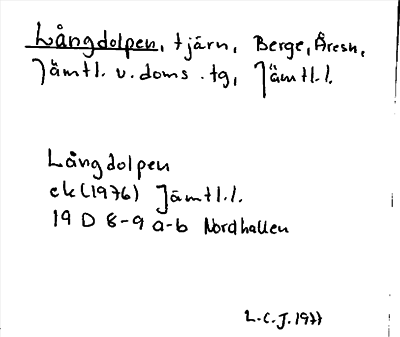 Långdolpen, tjärn, Berge, Åresk.,
Jämtl. v. doms. tg, Jämtl.l.
Långdolpen
ek (1976) Jämtl.l.
19 D 8-9 a-b Nordhallen
L.C.J. 1977